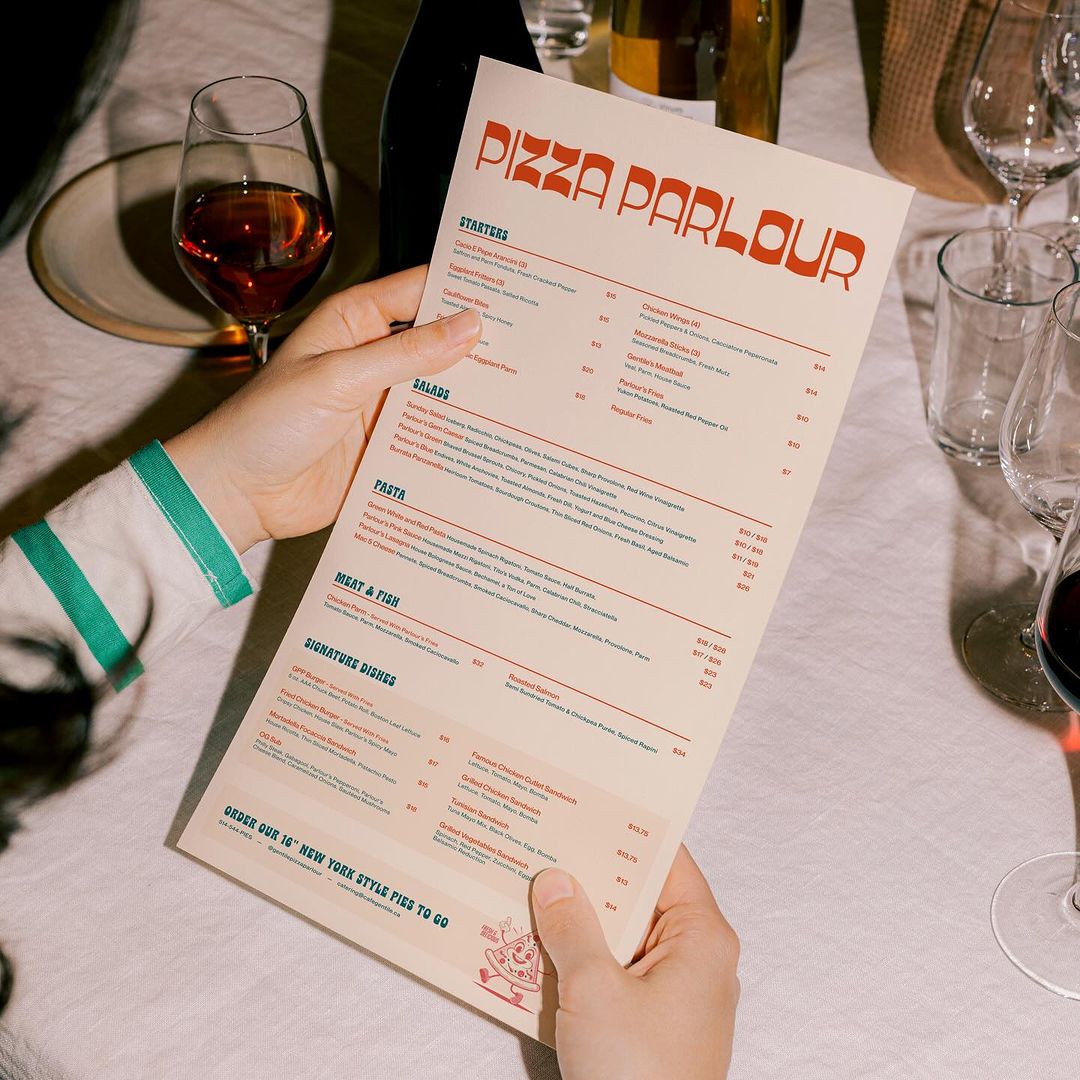 PIZZA PARLOUR
STARTERS
Cacio E Pepe Arancini (3)
Saffron and Parm Fonduta, Fresh Cracked Pepper
$15
Eggplant Fritters (3)
Sweet Tomato Passata, Salted Ricotta
$15
Cauliflower Bites
Toasted Spicy Honey
$13
$20
Eggplant Parm
$18
Chicken Wings (4)
Pickled Peppers & Onions, Cacciatore Peperonata
$14
Mozzarella Sticks (3)
Seasoned Breadcrumbs, Fresh Mutz
$14
Gentile's Meatball
Veal, Parm, House Sauce
$10
Parlour's Fries
Yukon Potatoes, Roasted Red Pepper Oil
$10
Regular Fries
$7
SALADS
Sunday Salad Iceberg, Radicchio, Chickpeas, Olives, Salami Cubes, Sharp Provolone, Red Wine Vinaigrette $10 / $16
Parlour's Gem Caesar Spiced Breadcrumbs, Parmesan, Calabrian Chili Vinaigrette $10 / $18
Parlour's Green Shaved Brussel Sprouts, Chicory, Pickled Onions, Toasted Hazelnuts, Pecorino, Citrus Vinaigrette $11 / $19
Parlour's Blue Endives, White Anchovies, Toasted Almonds, Fresh Dill, Yogurt and Blue Cheese Dressing $21
Burrata Panzanella Heirloom Tomatoes, Sourdough Croutons, Thin Sliced Red Onions, Fresh Basil, Aged Balsamic $26
PASTA
Green White and Red Pasta Housemade Spinach Rigatoni, Tomato Sauce, Half Burrata, $18 / $28
Parlour's Pink Sauce Housemade Mezzi Rigatoni, Tito's Vodka, Parm, Calabrian Chili, Stracciatella $17 / $26
Parlour's Lasagna House Bolognese Sauce, Bechamel, a Ton of Love $23
Mac 5 Cheese Pennete, Spiced Breadcrumbs, Smoked Caciocavallo, Sharp Cheddar, Mozzarella, Provolone, Parm $23
MEAT & FISH
Chicken Parm - Served With Parlour's Fries
Tomato Sauce, Parm, Mozzarella, Smoked Caciocavallo
$32
Roasted Salmon
Semi Sundried Tomato & Chickpea Purée, Spiced Rapini
$34
SIGNATURE DISHES
GPP Burger - Served With Fries
5 oz. AAA Chuck Beef, Potato Roll, Boston Leaf Lettuce
$16
Fried Chicken Burger - Served With Fries
Crispy Chicken, House Slaw, Parlour's Spicy Mayo
$17
Mortadella Focaccia Sandwich
House Ricotta, Thin Sliced Mortadella, Pistachio Pesto
$15
OG Sub
Philly Steak, Gabagool, Parlour's Pepperoni, Parlour's
Cheese Blend, Caramelized Onions, Sautéed Mushrooms
$18
Famous Chicken Cutlet Sandwich
Lettuce, Tomato, Mayo, Bomba
$13,75
Grilled Chicken Sandwich
Lettuce, Tomato, Mayo, Bomba
$13,75
Tunisian Sandwich
Tuna Mayo Mix, Black Olives, Egg, Bomba
$13
Grilled Vegetables Sandwich
Spinach, Red Pepper, Zucchini,
Balsamic Reduction
$14
ORDER OUR 16" NEW YORK STYLE PIES TO GO
514-544-PIES – @gentilepizzaparlour – catering@cafegentile.ca
FRESH &
DELICIOUS